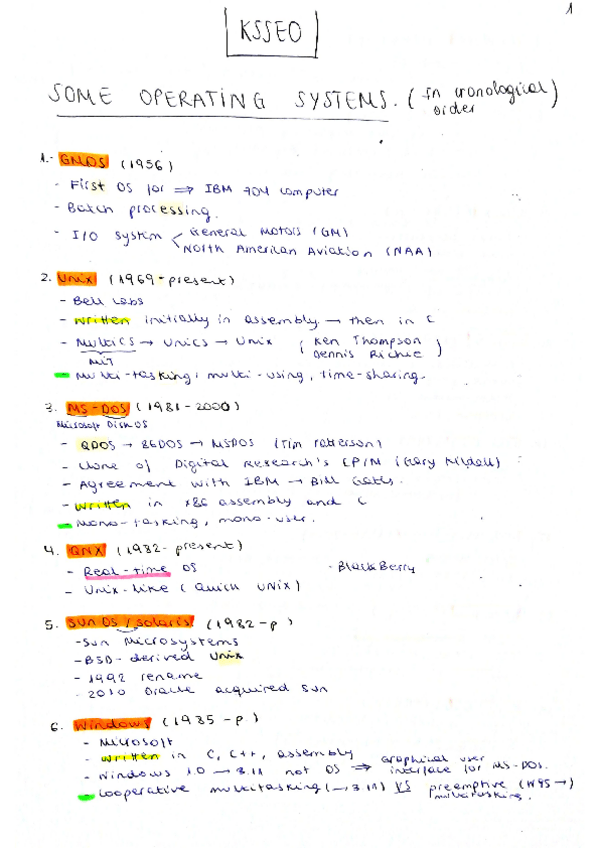 1
KSSEO
SOME OPERATING SYSTEMS. (In cronological order)
1.- GMOS (1956)
- First OS for ⇒ IBM 704 computer
- Batch processing.
- I/O system < General Motors (GM)
North American Aviation (NAA)
2. Unix (1969-present)
- Bell Labs
- written initially in assembly. → then in C
- Multics → Unics → Unix (Ken Thompson
MIT Dennis Richie)
- Multi-tasking, multi-using, time-sharing.
3. MS-DOS (1981-2000)
Microsoft Disk OS
- QDOS → 86DOS → MSDOS (Tim Patterson)
- Clone of Digital Research's CP/M (Gary Kildall)
- Agreement with IBM → Bill Gates.
- written in x86 assembly and C
- Mono-tasking, mono-user.
4. QNX (1982-present)
- Real-time OS - BlackBerry
- Unix-like (Quick UNIX)
5. Sun OS / Solaris (1982-p)
- Sun Microsystems
- BSD-derived Unix
- 1992 rename
- 2010 Oracle acquired Sun
6. Windows (1985-p)
- Microsoft
- written in C, C++, assembly
- Windows 1.0 → 3.11 not OS ⇒ Graphical user interface for MS-DOS.
- Cooperative multitasking (→ 3.11) VS preemptive (W95 →) multitasking.